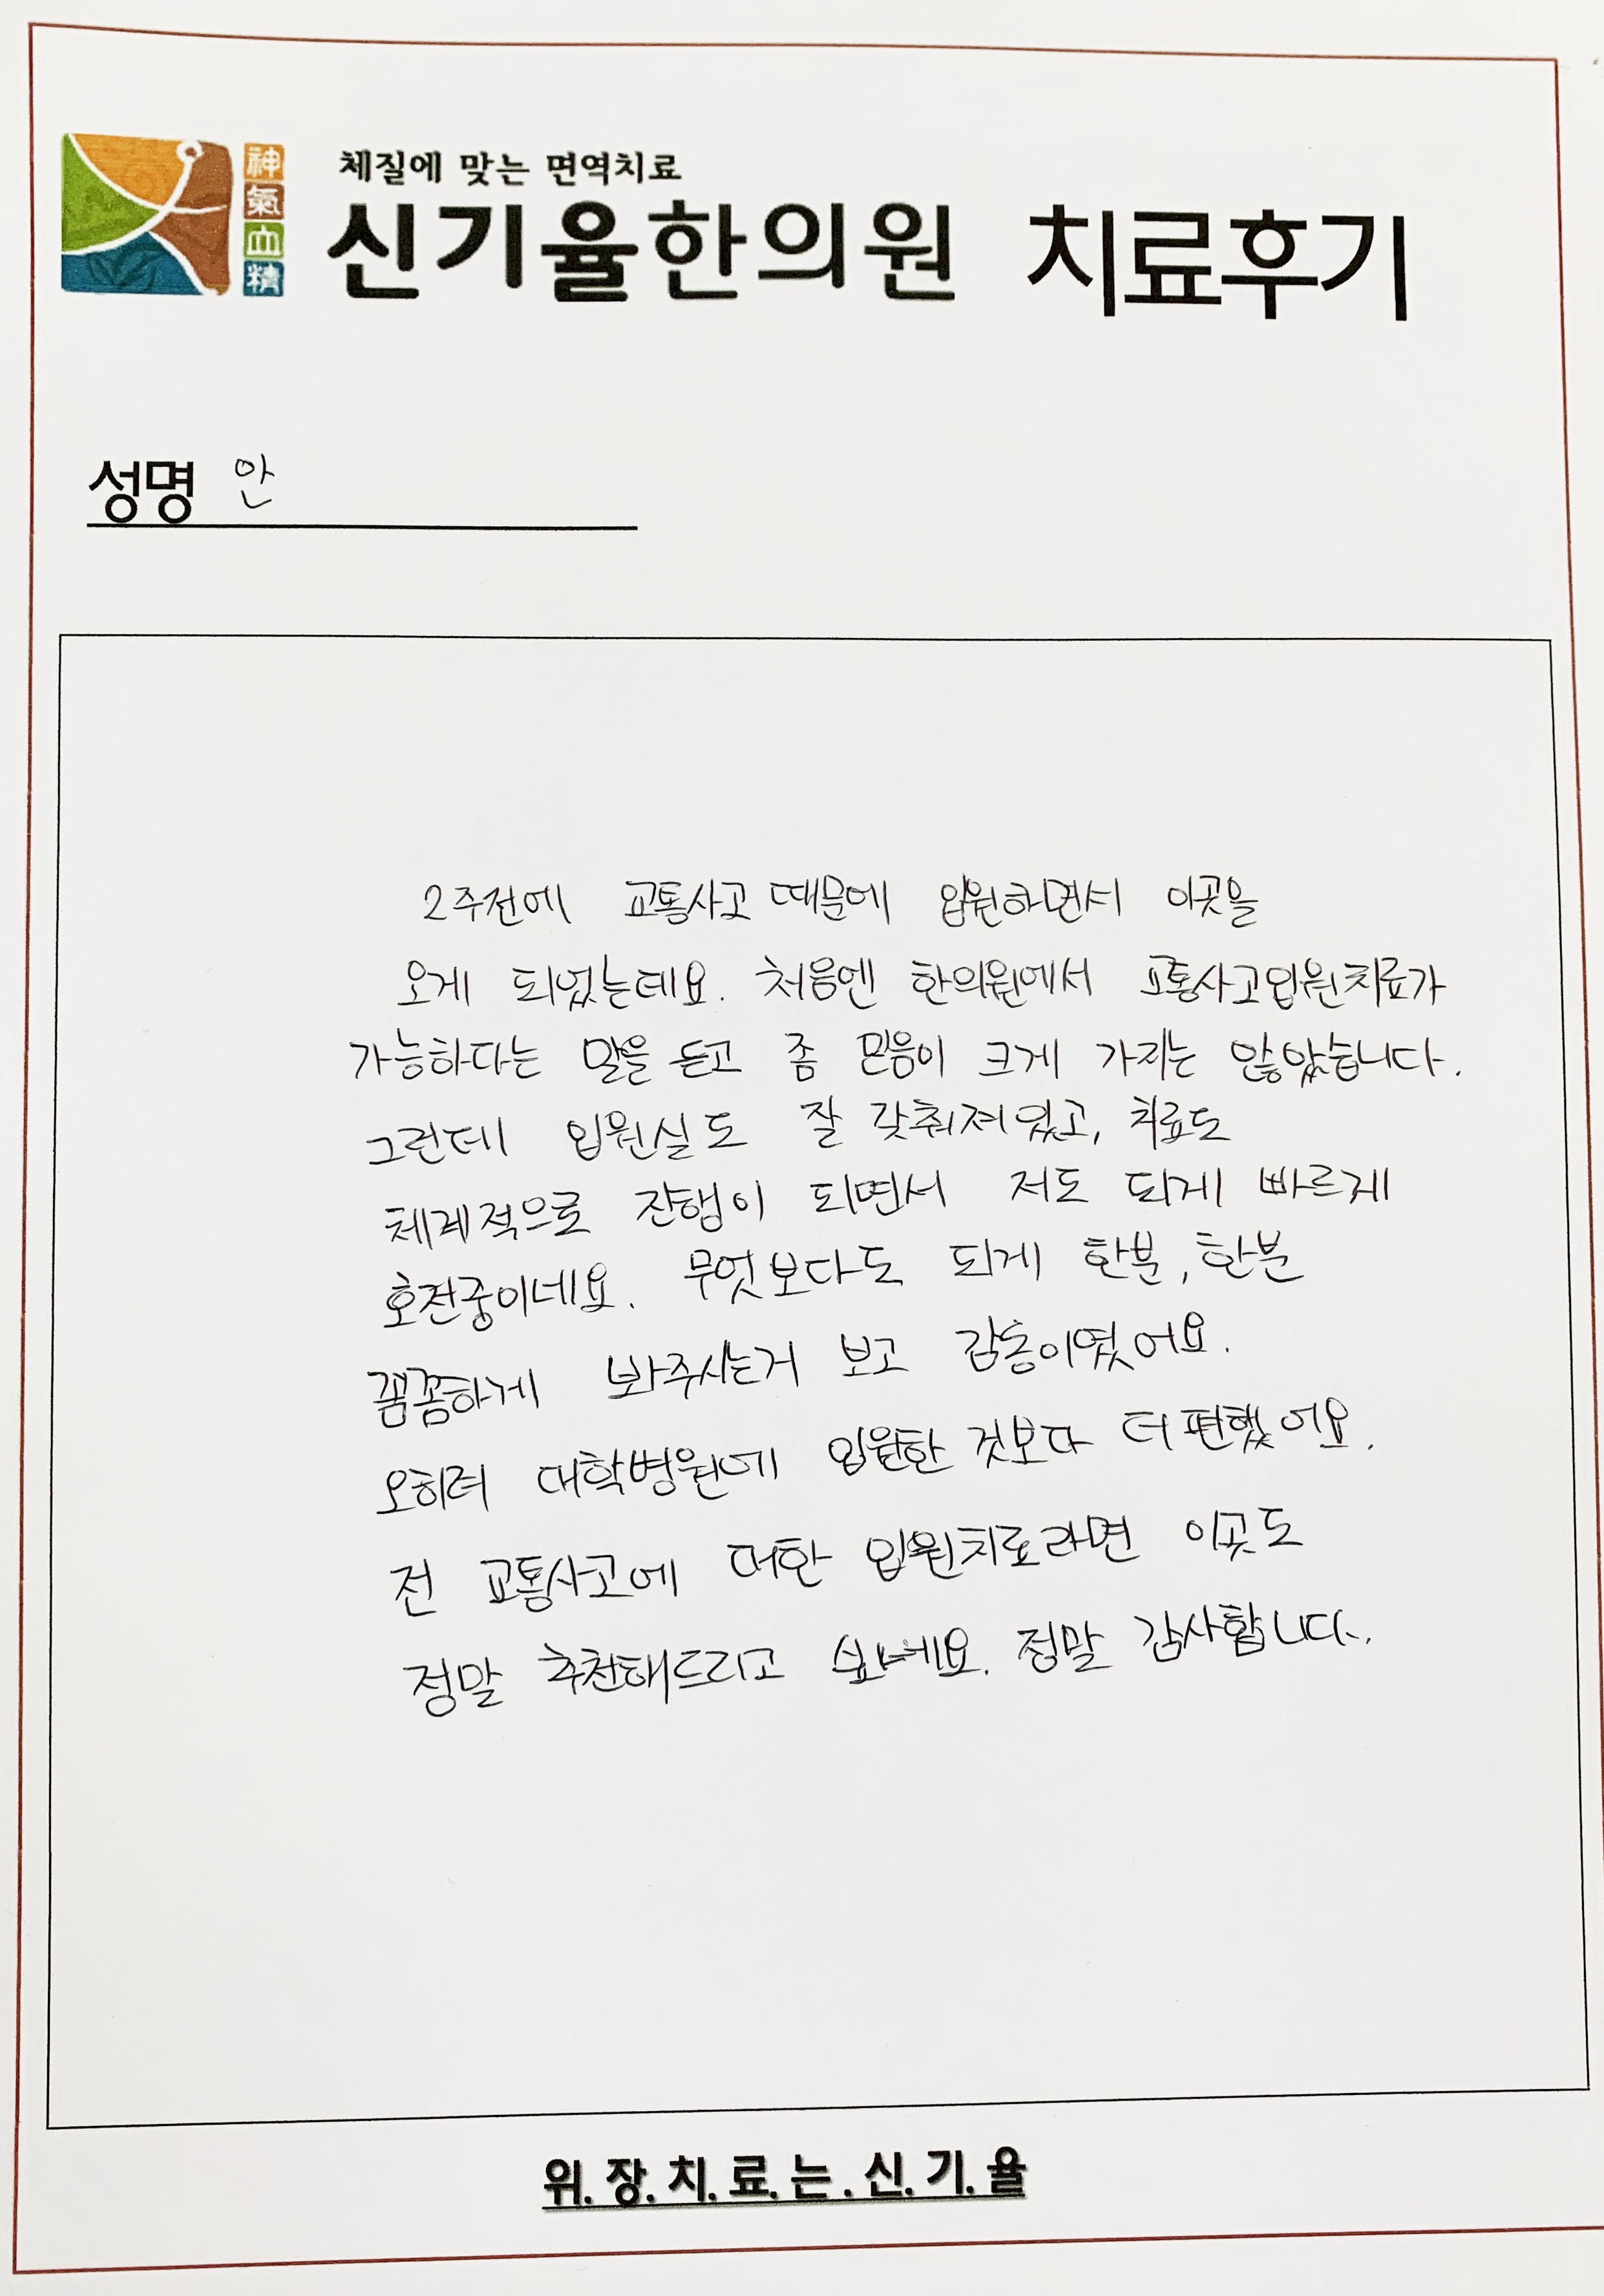 神氣血精
체질에 맞는 면역치료
신기율한의원 치료후기
성명 안
2주전에 교통사고 때문에 입원하면서 이곳을
오게 되었는데요. 처음엔 한의원에서 교통사고입원치료가
가능하다는 말을 듣고 좀 믿음이 크게 가지는 않았습니다.
그런데 입원실도 잘 갖춰져있고, 치료도
체계적으로 진행이 되면서 저도 되게 빠르게
호전중이네요. 무엇보다도 되게 한분, 한분
꼼꼼하게 봐주시는거 보고 감동이였어요.
오히려 대학병원에 입원한 것보다 더 편했어요.
전 교통사고에 대한 입원치료라면 이곳도
정말 추천해드리고 싶네요. 정말 감사합니다.
위.장.치.료.는.신.기.율